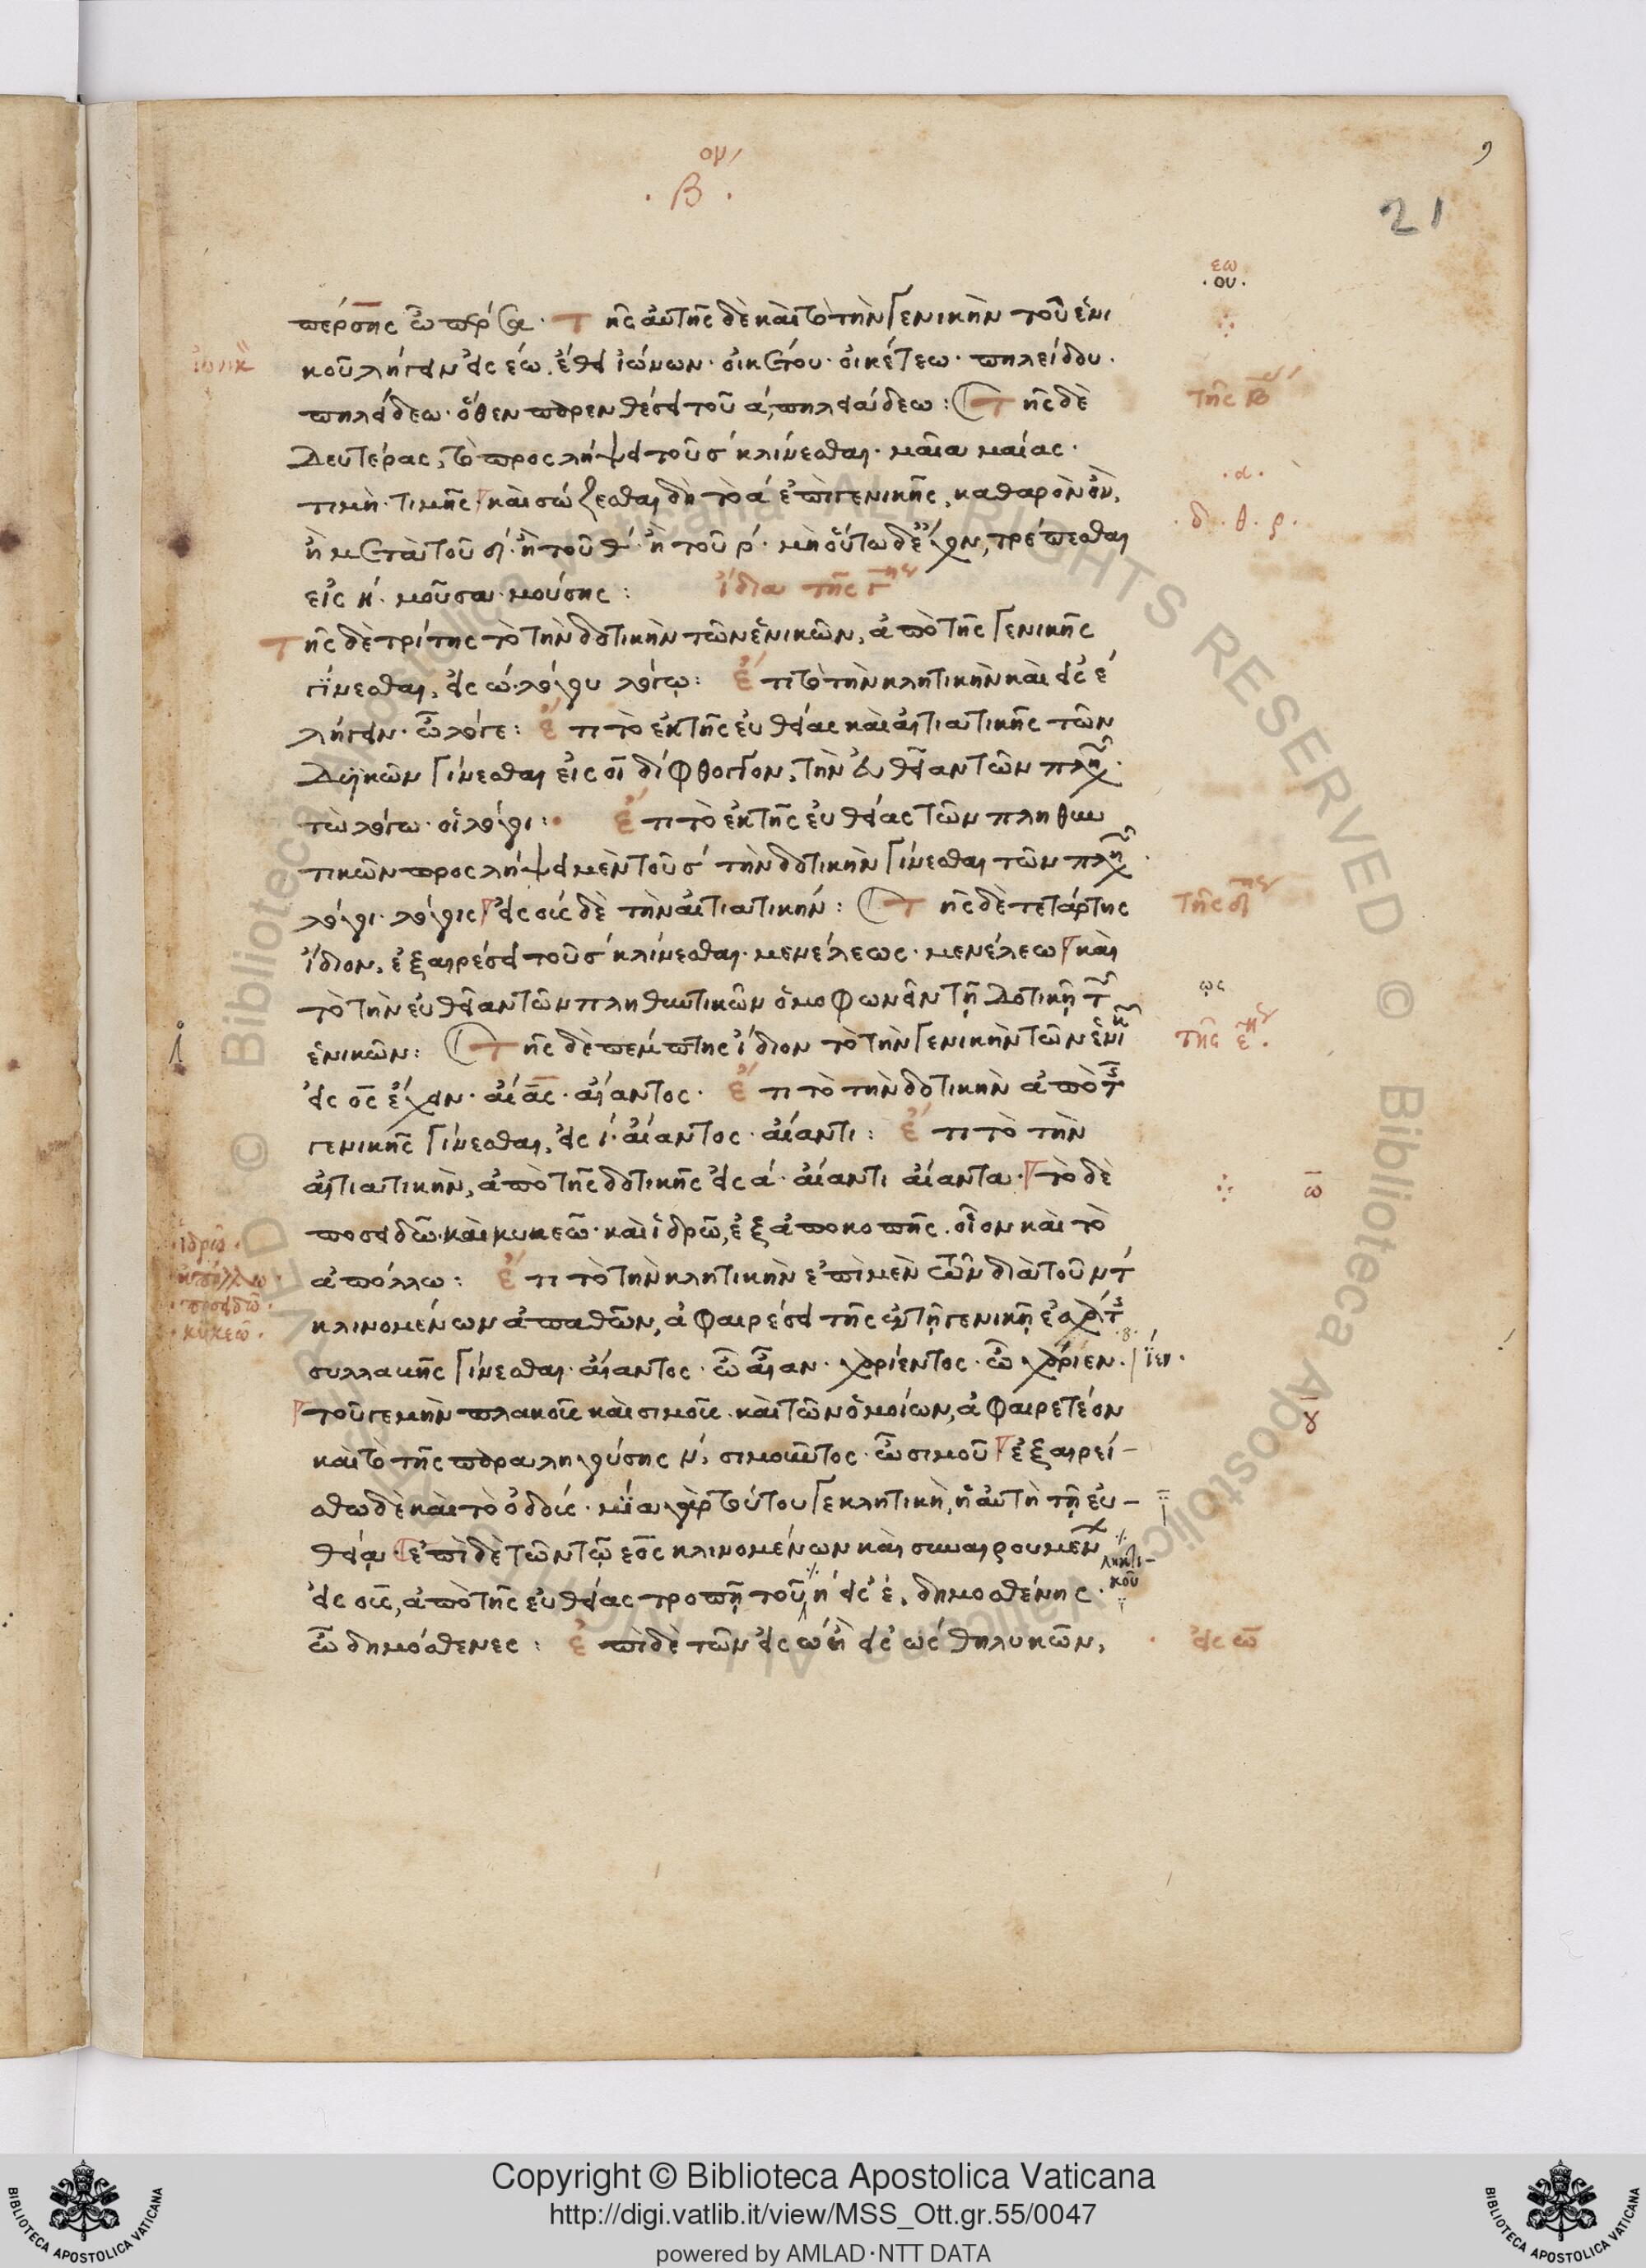 ον
· β ·
21
εω
· ου ·
πέρσης ὦ πέρσα · Τῆς αὐτῆς δὲ καὶ τὸ τὴν γενικὴν τοῦ ἑνι
κοῦ λήγειν εἰς έω. ἔθει ἰώνων · οἰκέτου · οἰκέτεω · πηλείδου ·
πηλείδεω · ὅθεν παρενθέσει τοῦ ά, πηληϊάδεω : Τῆς δὲ
Δευτέρας, τὸ προσλήψει τοῦ σ κλίνεσθαι · μαῖα μαίας ·
τιμὴ · τιμῆς καὶ σώζεσθαι δὴ τὸ α ἐπὶ γενικῆς, καθαρὸν ὂν,
ἢ μετὰ τοῦ δ · ἢ τοῦ θ · ἢ τοῦ ρ · μὴ οὕτω δ' ἔχον, τρέπεσθαι
εἰς η · μοῦσα μούσης :
ἴδια τῆς γ
Τῆς δὲ τρίτης τὸ τὴν δοτικὴν τῶν ἑνικῶν, ἀπὸ τῆς γενικῆς
γίνεσθαι, εἰς ω · λόγου λόγῳ : ἔτι τὸ τὴν κλητικὴν καὶ εἰς ε
λήγειν · ὦ λόγε : ἔτι τὸ ἐκ τῆς εὐθείας καὶ αἰτιατικῆς τῶν
Δυϊκῶν γίνεσθαι εἰς οι δίφθογγον, τὴν εὐθεῖαν τῶν πλη
τὼ λόγω · οἱ λόγοι : ἔτι τὸ ἐκ τῆς εὐθείας τῶν πληθυν
τικῶν προσλήψει μὲν τοῦ σ τὴν δοτικὴν γίνεσθαι τῶν πλη
λόγοι · λόγοις εἰς ους δὲ τὴν αἰτιατικήν : Τῆς δὲ τετάρτης
ἴδιον, ἐξαιρέσει τοῦ σ κλίνεσθαι · μενέλεως · μενέλεω καὶ
τὸ τὴν εὐθεῖαν τῶν πληθυντικῶν ὁμοφωνεῖν τῇ Δοτικῇ τῶν
ἑνικῶν : Τῆς δὲ πέμπτης ἴδιον τὸ τὴν γενικὴν τῶν ἑνικ
εἰς ος ἔχειν · αἴας · αἴαντος · ἔτι τὸ τὴν δοτικὴν ἀπὸ τῆς
γενικῆς γίνεσθαι, εἰς ι · αἴαντος · αἴαντι : ἔτι τὸ τὴν
αἰτιατικὴν, ἀπὸ τῆς δοτικῆς εἰς α · αἴαντι αἴαντα · τὸ δὲ
ποσειδῶ · καὶ κυκεῶ · καὶ ἱδρῶ, ἐξ ἀποκοπῆς. οἷον καὶ τὸ
ἀπόλλω : ἔτι τὸ τὴν κλητικὴν ἐπὶ μὲν τῶν διὰ τοῦ ντ
κλινομένων ἀπαθῶν, ἀφαιρέσει τῆς ἐν τῇ γενικῇ ἐσχάτης
συλλαβῆς γίνεσθαι · αἴαντος · ὦ αἶαν · χαρίεντος · ὦ χαρίεν ·
τοῦ γε μὴν πλακοῦς καὶ σιμοῦς · καὶ τῶν ὁμοίων, ἀφαιρετέον
καὶ τὸ τῆς παραληγούσης ν, σιμοῦντος · ὦ σιμοῦ ἐξαιρεί-
σθω δὲ καὶ τὸ ὀδούς · μία γὰρ τούτου γε κλητικὴ, ἡ αὐτὴ τῇ εὐ-
θείᾳ · ἐπὶ δὲ τῶν τῷ εος κλινομένων καὶ συναιρουμένων
εἰς ους, ἀπὸ τῆς εὐθείας τροπῇ τοῦ η εἰς ε, δημοσθένης ·
ὦ δημόσθενες : ἐπὶ δὲ τῶν εἰς ω ἢ εἰς ως θηλυκῶν,
ἰωνικ
· ἱδρῶ ·
ἀπόλλω ·
· ποσειδῶ ·
· κυκεῶ ·
τῆς β
· α ·
· δ · θ · ρ ·
τῆς δ
ως
τῆς ε ·
ω
ϊεν ·
ληκτι-
κοῦ
εἰς ω
Copyright © Biblioteca Apostolica Vaticana
http://digi.vatlib.it/view/MSS_Ott.gr.55/0047
powered by AMLAD·NTT DATA
BIBLIOTECA APOSTOLICA VATICANA
BIBLIOTECA APOSTOLICA VATICANA